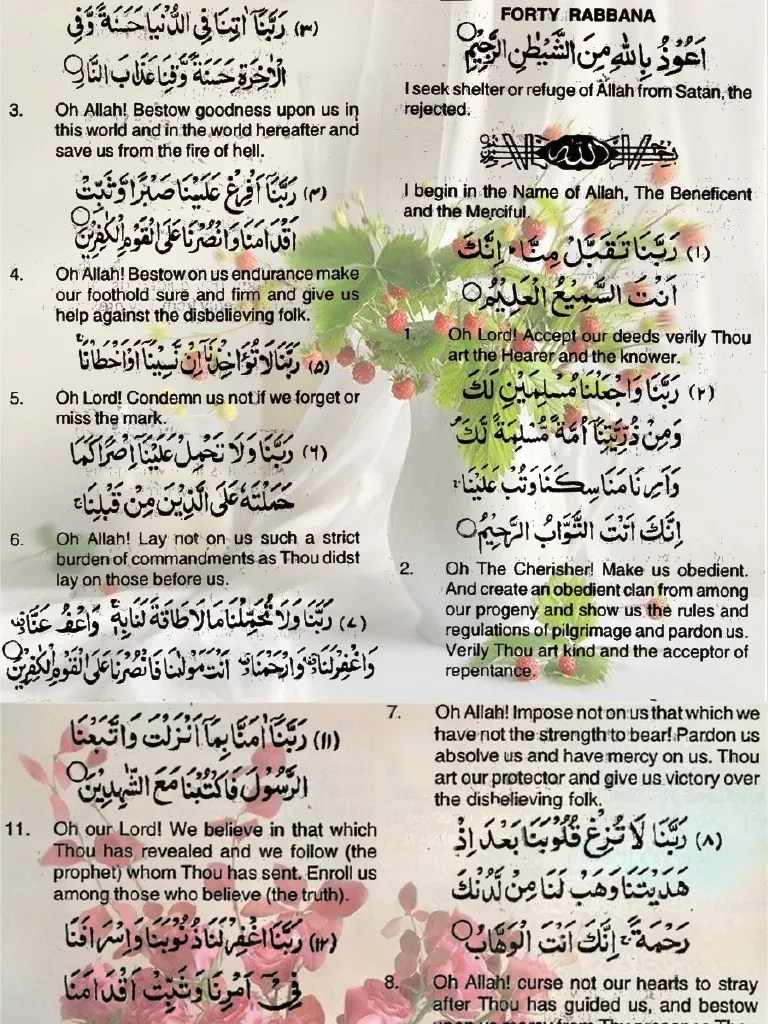 FORTY RABBANA
اَعُوْذُ بِاللّٰهِ مِنَ الشَّيْطٰنِ الرَّجِيْمِ
I seek shelter or refuge of Allah from Satan, the
rejected.
I begin in the Name of Allah, The Beneficent
and the Merciful.
(۱) رَبَّنَا تَقَبَّلْ مِنَّا ؕ اِنَّكَ
اَنْتَ السَّمِيْعُ الْعَلِيْمُ
1. Oh Lord! Accept our deeds verily Thou
art the Hearer and the knower.
(۲) رَبَّنَا وَاجْعَلْنَا مُسْلِمَيْنِ لَكَ
وَمِنْ ذُرِّيَّتِنَاۤ اُمَّةً مُّسْلِمَةً لَّكَ
وَاَرِنَا مَنَاسِكَنَا وَتُبْ عَلَيْنَا
اِنَّكَ اَنْتَ التَّوَّابُ الرَّحِيْمُ
2. Oh The Cherisher! Make us obedient.
And create an obedient clan from among
our progeny and show us the rules and
regulations of pilgrimage and pardon us.
Verily Thou art kind and the acceptor of
repentance.
(۳) رَبَّنَاۤ اٰتِنَا فِى الدُّنْيَا حَسَنَةً وَّفِى
الْاٰخِرَةِ حَسَنَةً وَّقِنَا عَذَابَ النَّارِ
3. Oh Allah! Bestow goodness upon us in
this world and in the world hereafter and
save us from the fire of hell.
(۴) رَبَّنَاۤ اَفْرِغْ عَلَيْنَا صَبْرًا وَّثَبِّتْ
اَقْدَامَنَا وَانْصُرْنَا عَلَى الْقَوْمِ الْكٰفِرِيْنَ
4. Oh Allah! Bestow on us endurance make
our foothold sure and firm and give us
help against the disbelieving folk.
(۵) رَبَّنَا لَا تُؤَاخِذْنَاۤ اِنْ نَّسِيْنَاۤ اَوْ اَخْطَاْنَا
5. Oh Lord! Condemn us not if we forget or
miss the mark.
(۶) رَبَّنَا وَلَا تَحْمِلْ عَلَيْنَاۤ اِصْرًا كَمَا
حَمَلْتَهٗ عَلَى الَّذِيْنَ مِنْ قَبْلِنَا
6. Oh Allah! Lay not on us such a strict
burden of commandments as Thou didst
lay on those before us.
(۷) رَبَّنَا وَلَا تُحَمِّلْنَا مَا لَا طَاقَةَ لَنَا بِهٖ وَاعْفُ عَنَّا
وَاغْفِرْلَنَا وَارْحَمْنَا اَنْتَ مَوْلٰىنَا فَانْصُرْنَا عَلَى الْقَوْمِ الْكٰفِرِيْنَ
7. Oh Allah! Impose not on us that which we
have not the strength to bear! Pardon us
absolve us and have mercy on us. Thou
art our protector and give us victory over
the disbelieving folk.
(۸) رَبَّنَا لَا تُزِغْ قُلُوْبَنَا بَعْدَ اِذْ
هَدَيْتَنَا وَهَبْ لَنَا مِنْ لَّدُنْكَ
رَحْمَةً اِنَّكَ اَنْتَ الْوَهَّابُ
8. Oh Allah! curse not our hearts to stray
after Thou has guided us, and bestow
(۱۱) رَبَّنَاۤ اٰمَنَّا بِمَاۤ اَنْزَلْتَ وَاتَّبَعْنَا
الرَّسُوْلَ فَاكْتُبْنَا مَعَ الشّٰهِدِيْنَ
11. Oh our Lord! We believe in that which
Thou has revealed and we follow (the
prophet) whom Thou has sent. Enroll us
among those who believe (the truth).
(۱۲) رَبَّنَا اغْفِرْلَنَا ذُنُوْبَنَا وَاِسْرَافَنَا
فِىْۤ اَمْرِنَا وَثَبِّتْ اَقْدَامَنَا